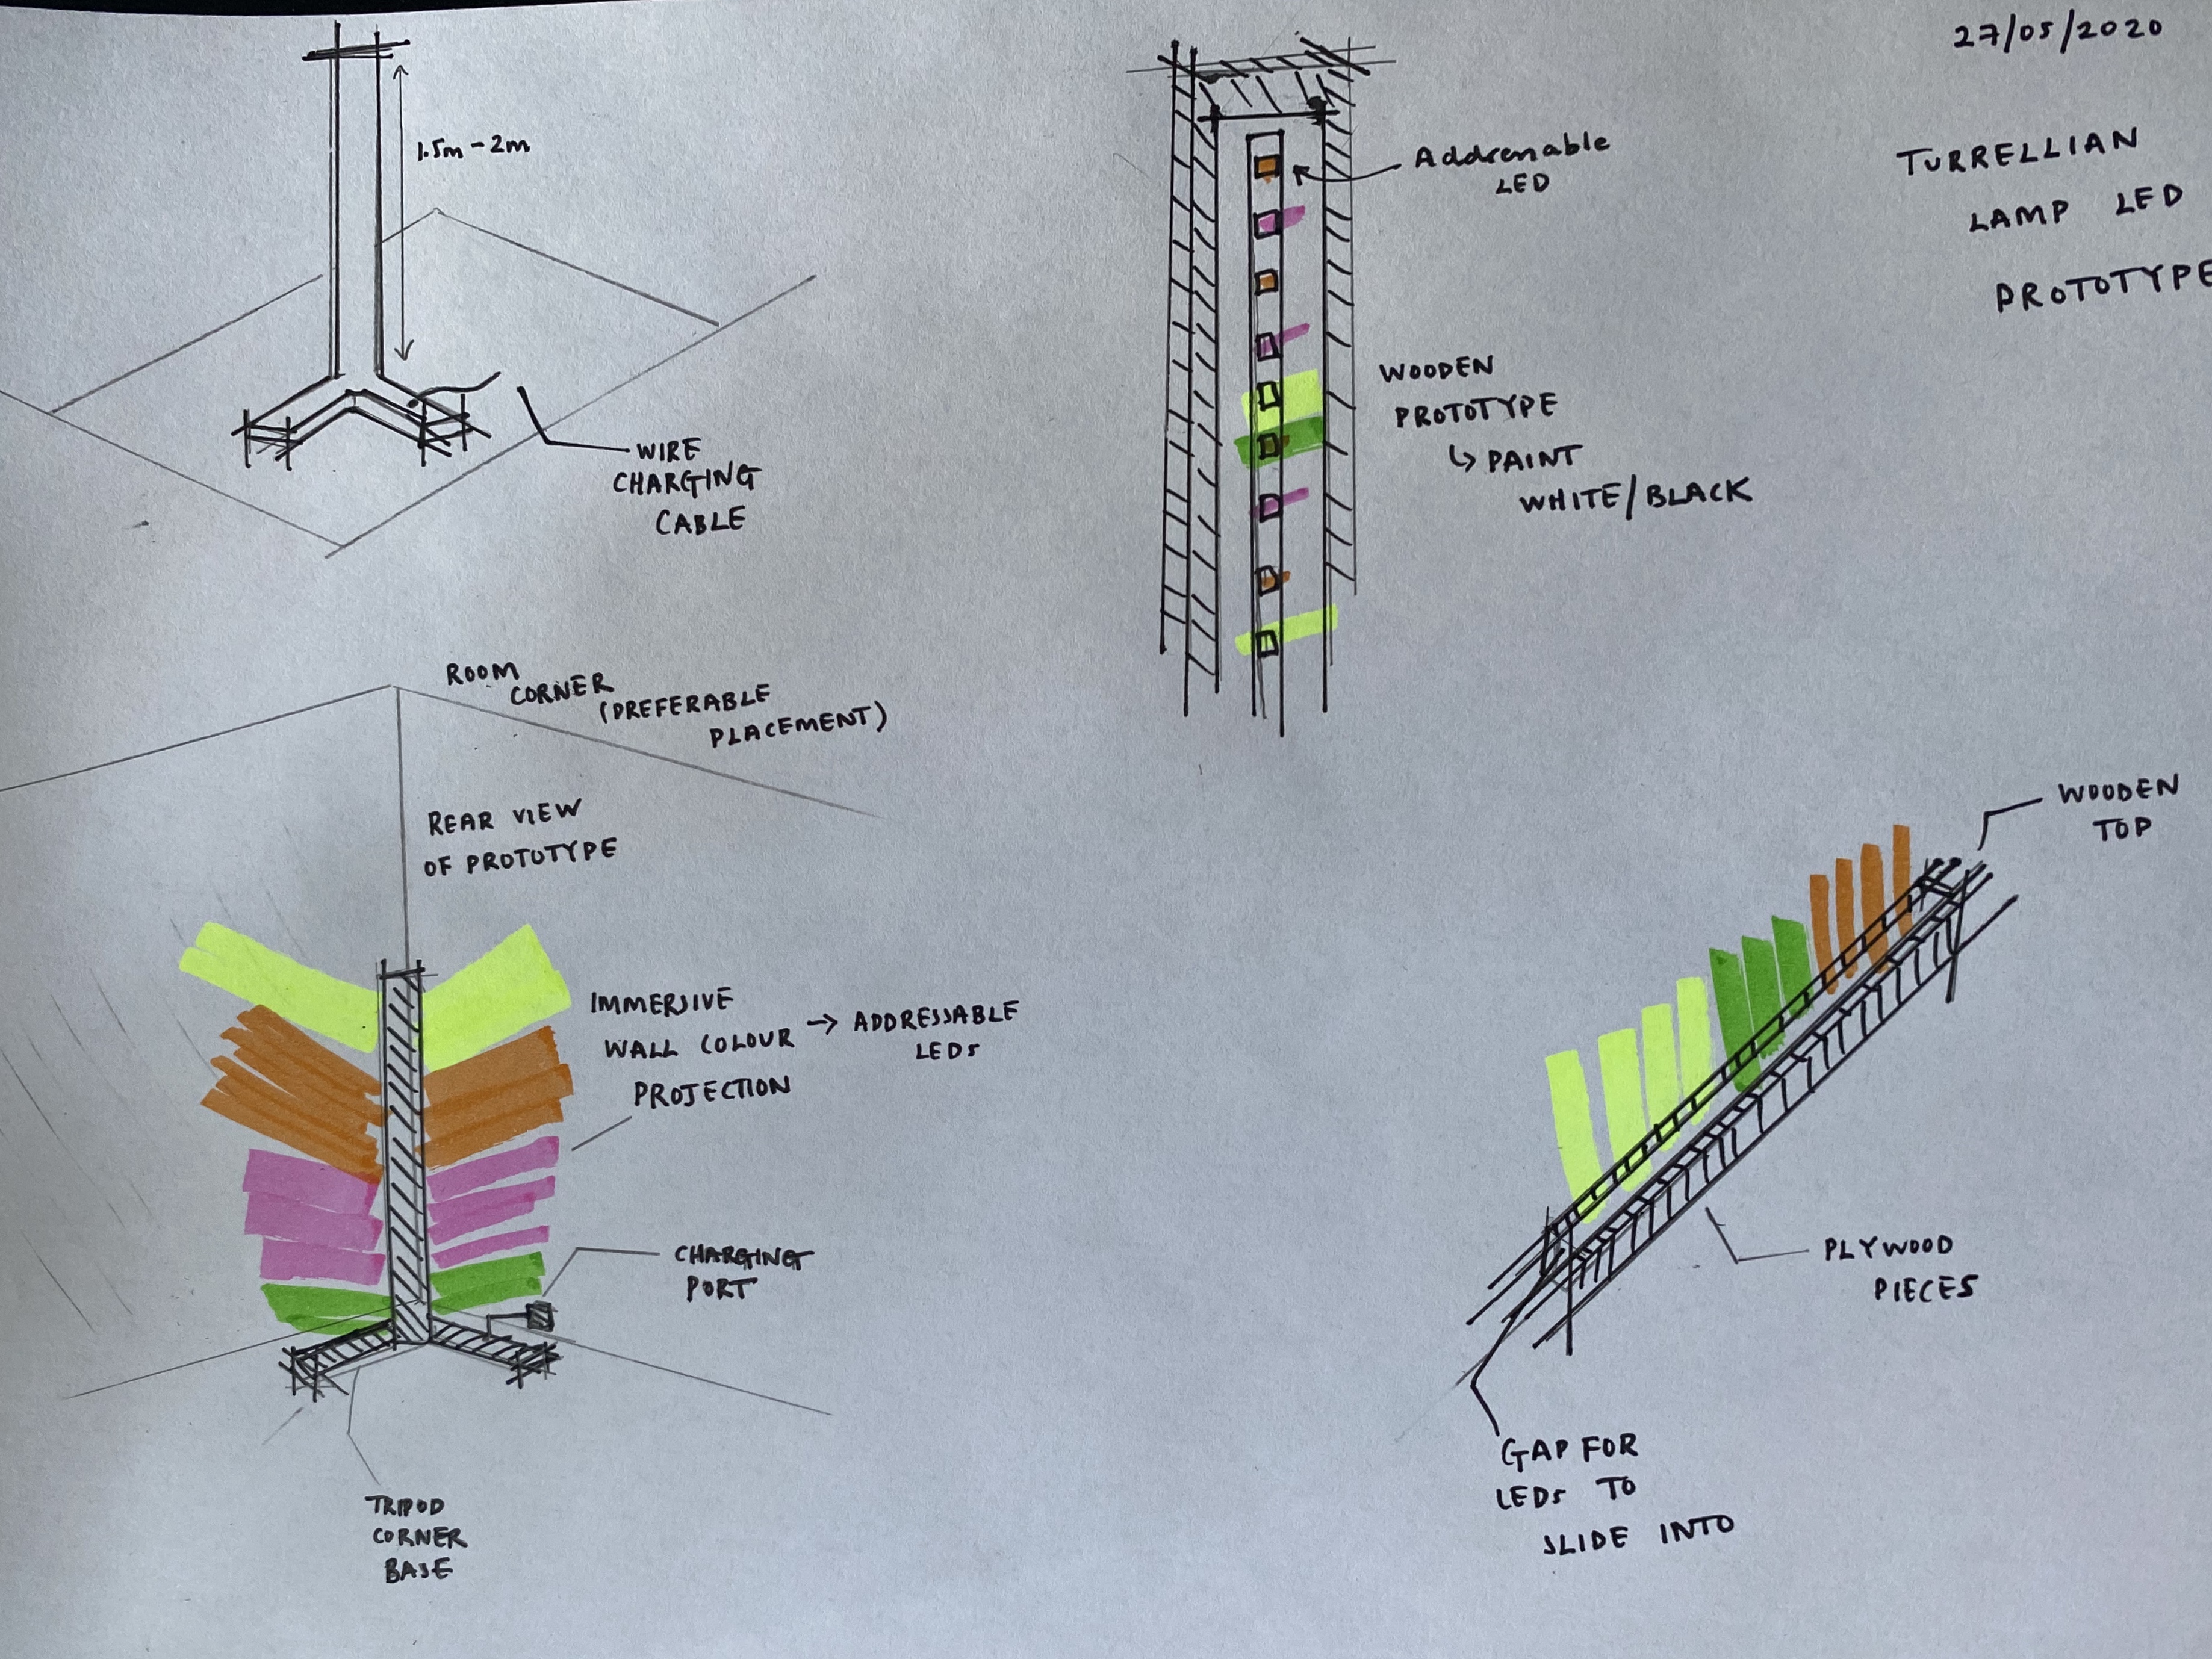 27/05/2020
TURRELLIAN
LAMP LED
PROTOTYPE
1.5m - 2m
WIRE
CHARGING
CABLE
Addrenable
LED
WOODEN
PROTOTYPE
↳ PAINT
WHITE/BLACK
ROOM
CORNER
(PREFERABLE
PLACEMENT)
REAR VIEW
OF PROTOTYPE
IMMERSIVE
WALL COLOUR → ADDRESSABLE
LEDs
PROJECTION
CHARGING
PORT
TRIPOD
CORNER
BASE
WOODEN
TOP
PLYWOOD
PIECES
GAP FOR
LEDs TO
SLIDE INTO